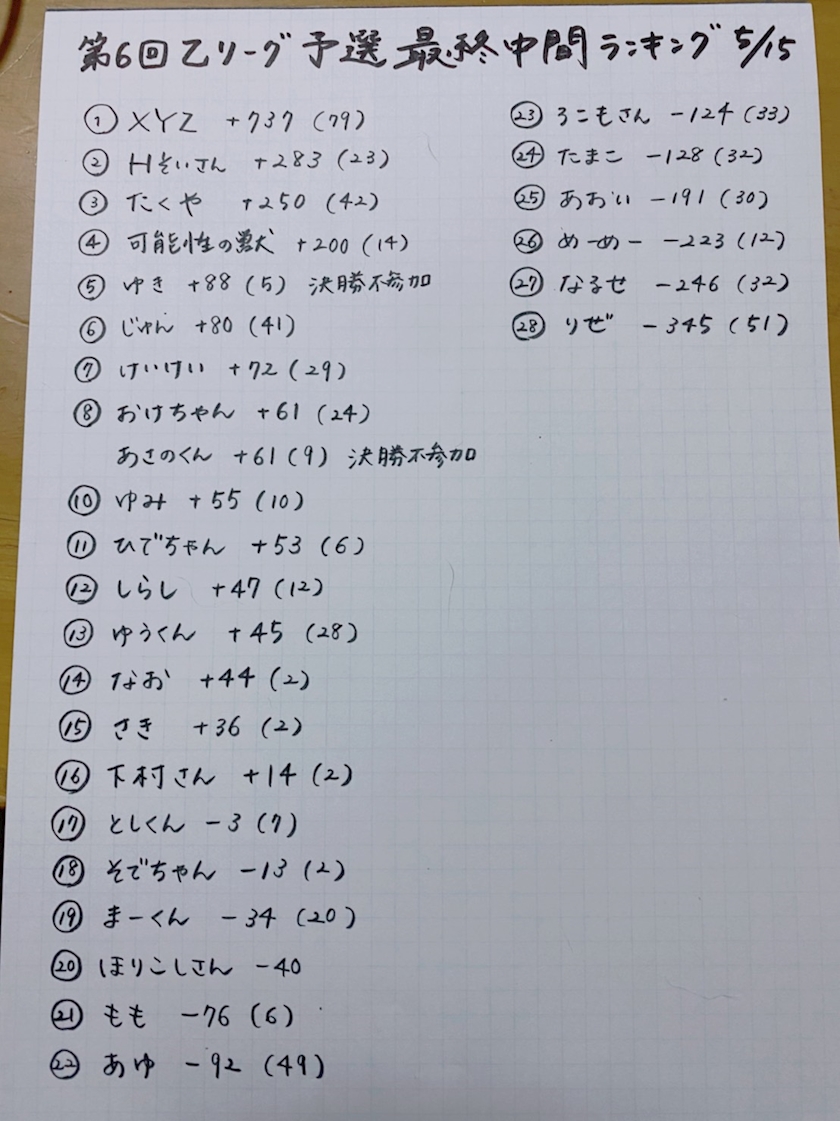 第6回乙リーグ予選最終中間ランキング5/15
① XYZ +737 (79)
② Hそいさん +283 (23)
③ たくや +250 (42)
④ 可能性の獣 +200 (14)
⑤ ゆき +88 (5) 決勝不参加
⑥ じゅん +80 (41)
⑦ けいけい +72 (29)
⑧ おけちゃん +61 (24)
あさのくん +61 (9) 決勝不参加
⑩ ゆみ +55 (10)
⑪ ひでちゃん +53 (6)
⑫ しらし +47 (12)
⑬ ゆうくん +45 (28)
⑭ なお +44 (2)
⑮ さき +36 (2)
⑯ 下村さん +14 (2)
⑰ としくん -3 (7)
⑱ そでちゃん -13 (2)
⑲ まーくん -34 (20)
⑳ ほりこしさん -40
㉑ もも -76 (6)
㉒ あゆ -92 (49)
㉓ ろこもさん -124 (33)
㉔ たまこ -128 (32)
㉕ あおい -191 (30)
㉖ めーめー -223 (12)
㉗ なるせ -246 (32)
㉘ りぜ -345 (51)